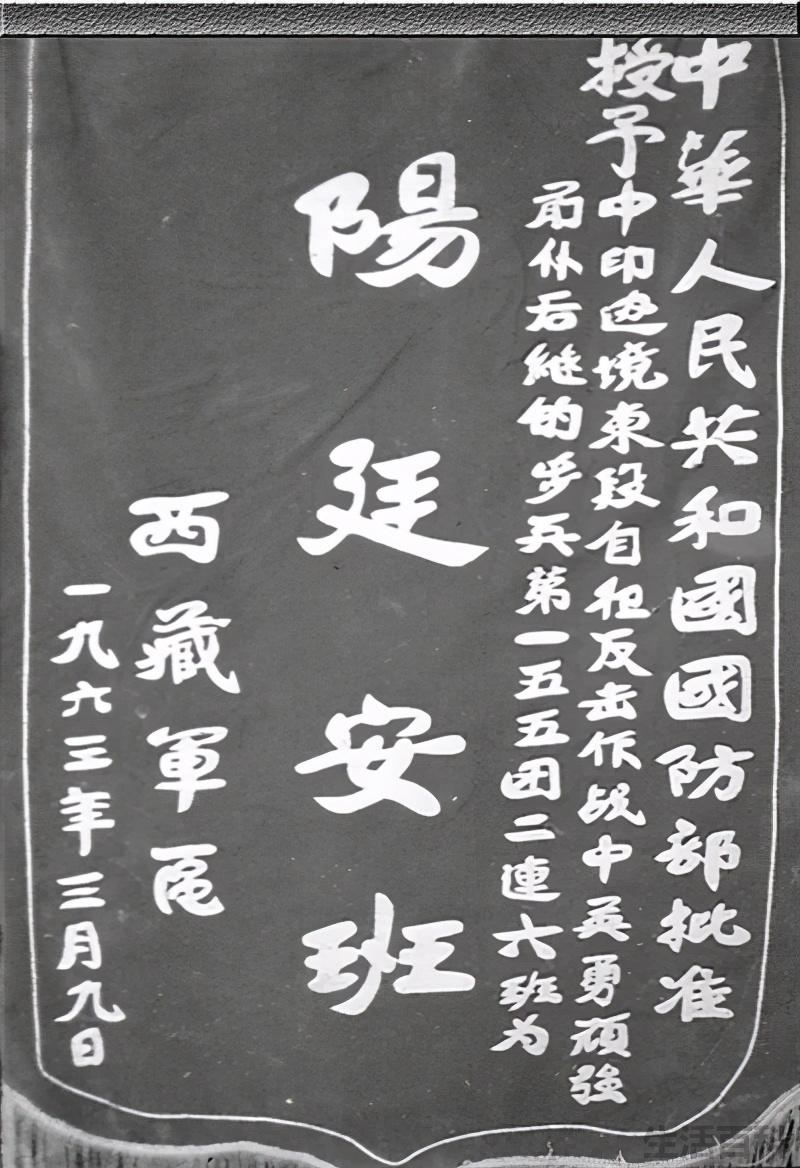 中華人民共和國國防部批准
授予中印边境東段自衛反击作战中英勇頑強
前仆后継的步兵第一五五团二連六班为
陽廷安班
西藏軍區
一九六三年三月九日
生活百科